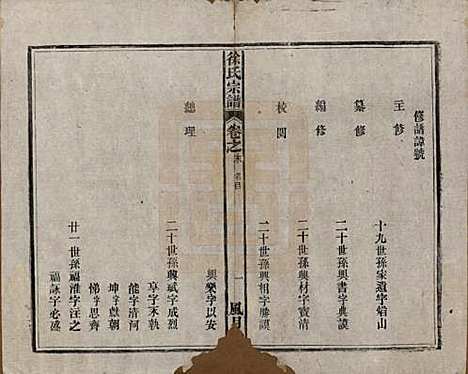 修譜諱號
主修
十九世孫家遺字貽山
纂修
二十世孫興書字典謨
編修
二十世孫興材字實清
校閱
二十世孫興相字勝謨
徐氏宗譜
卷之末
一
總理
興燮字以安
二十世孫興斌字成烈
享字本執
能字清河
坤字獻朝
悌字思齊
廿一世孫福淮字注之
福詠字必盛